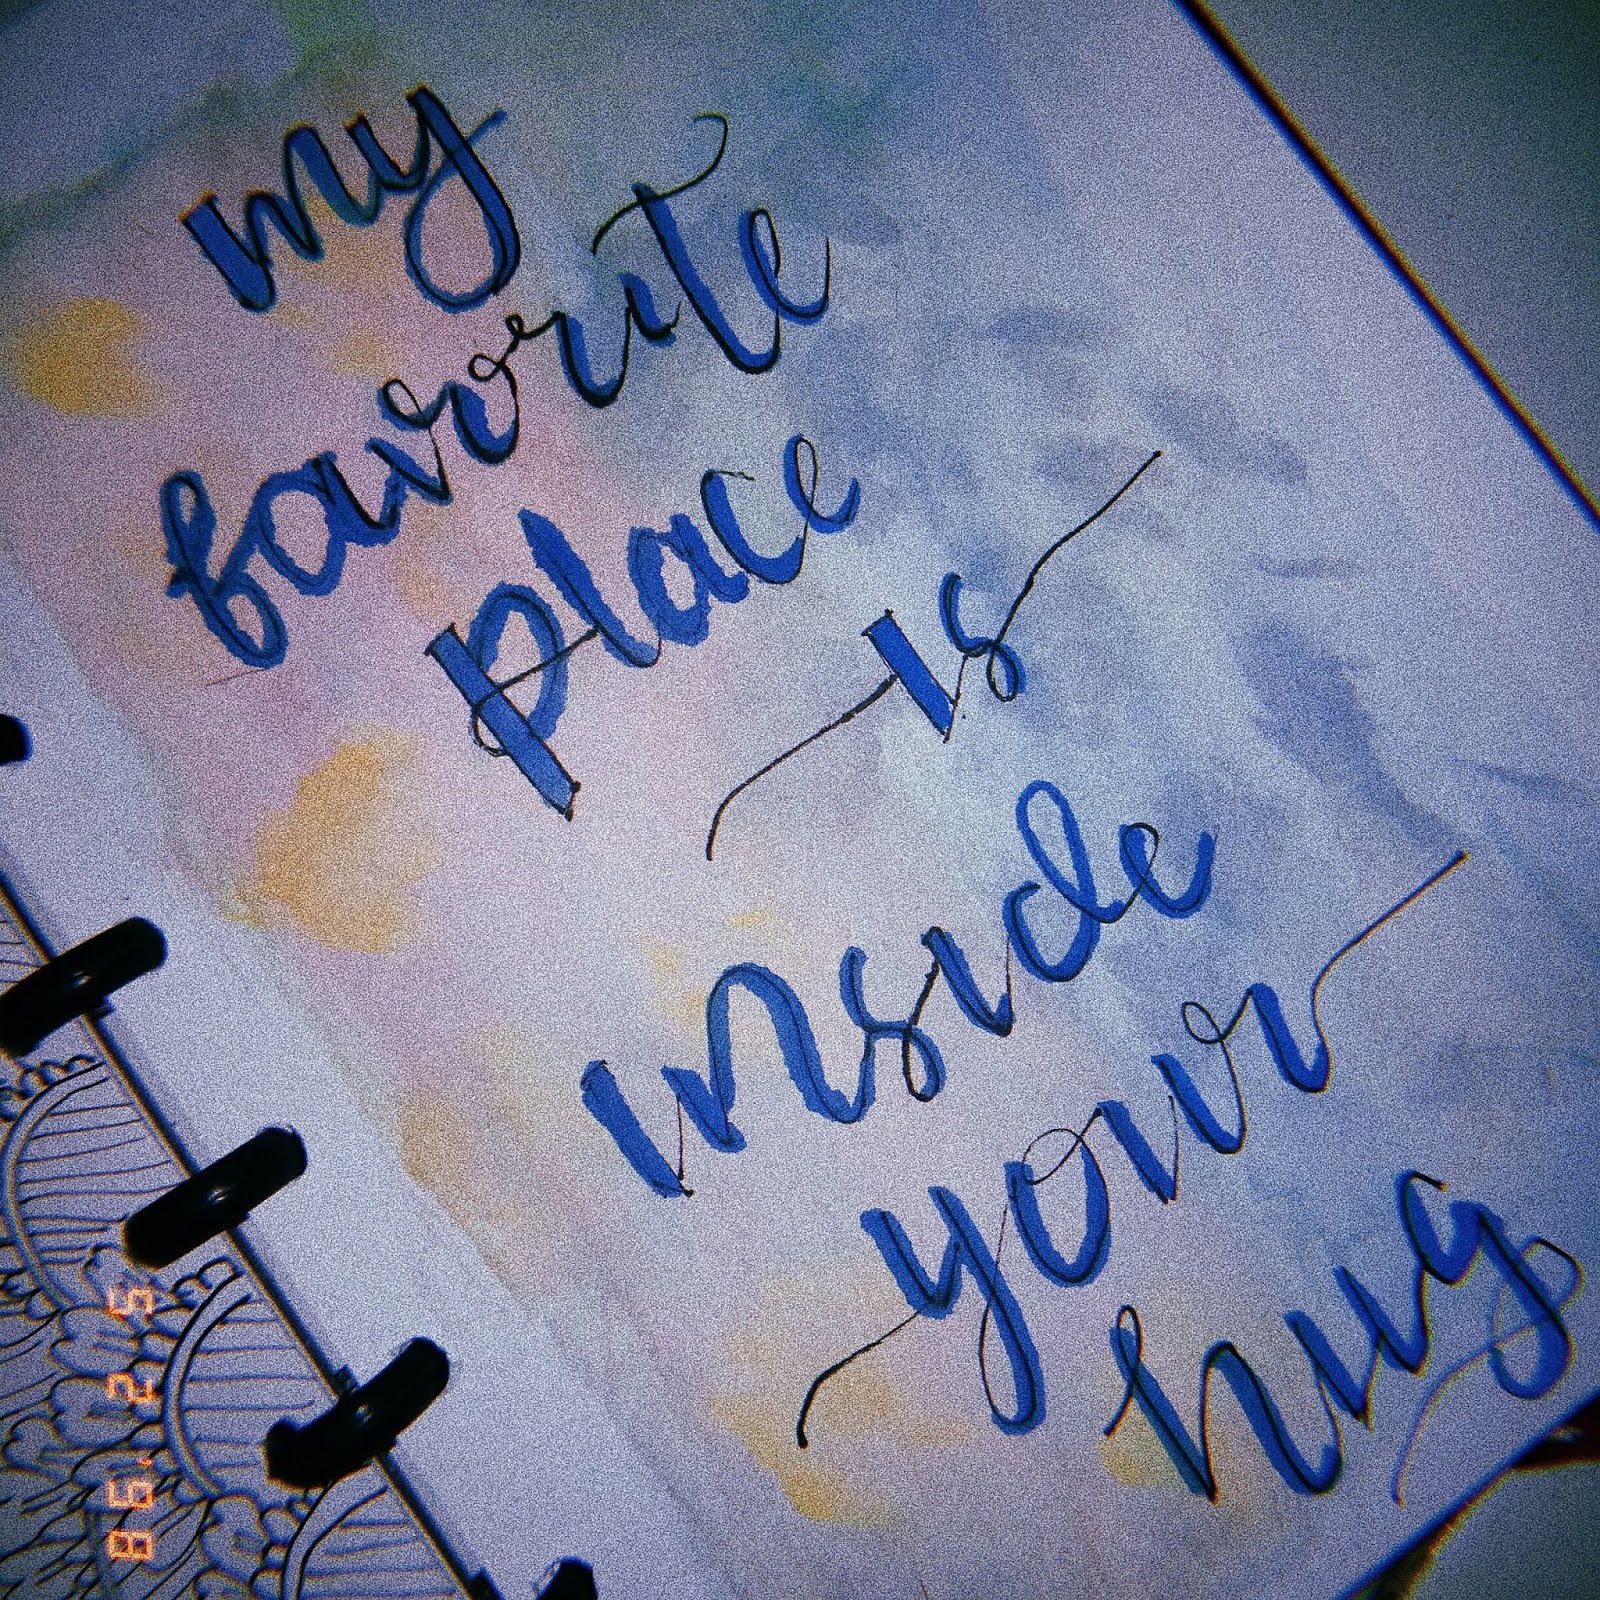 my
favorite
place
is
inside
your
hug
86. 2. 5